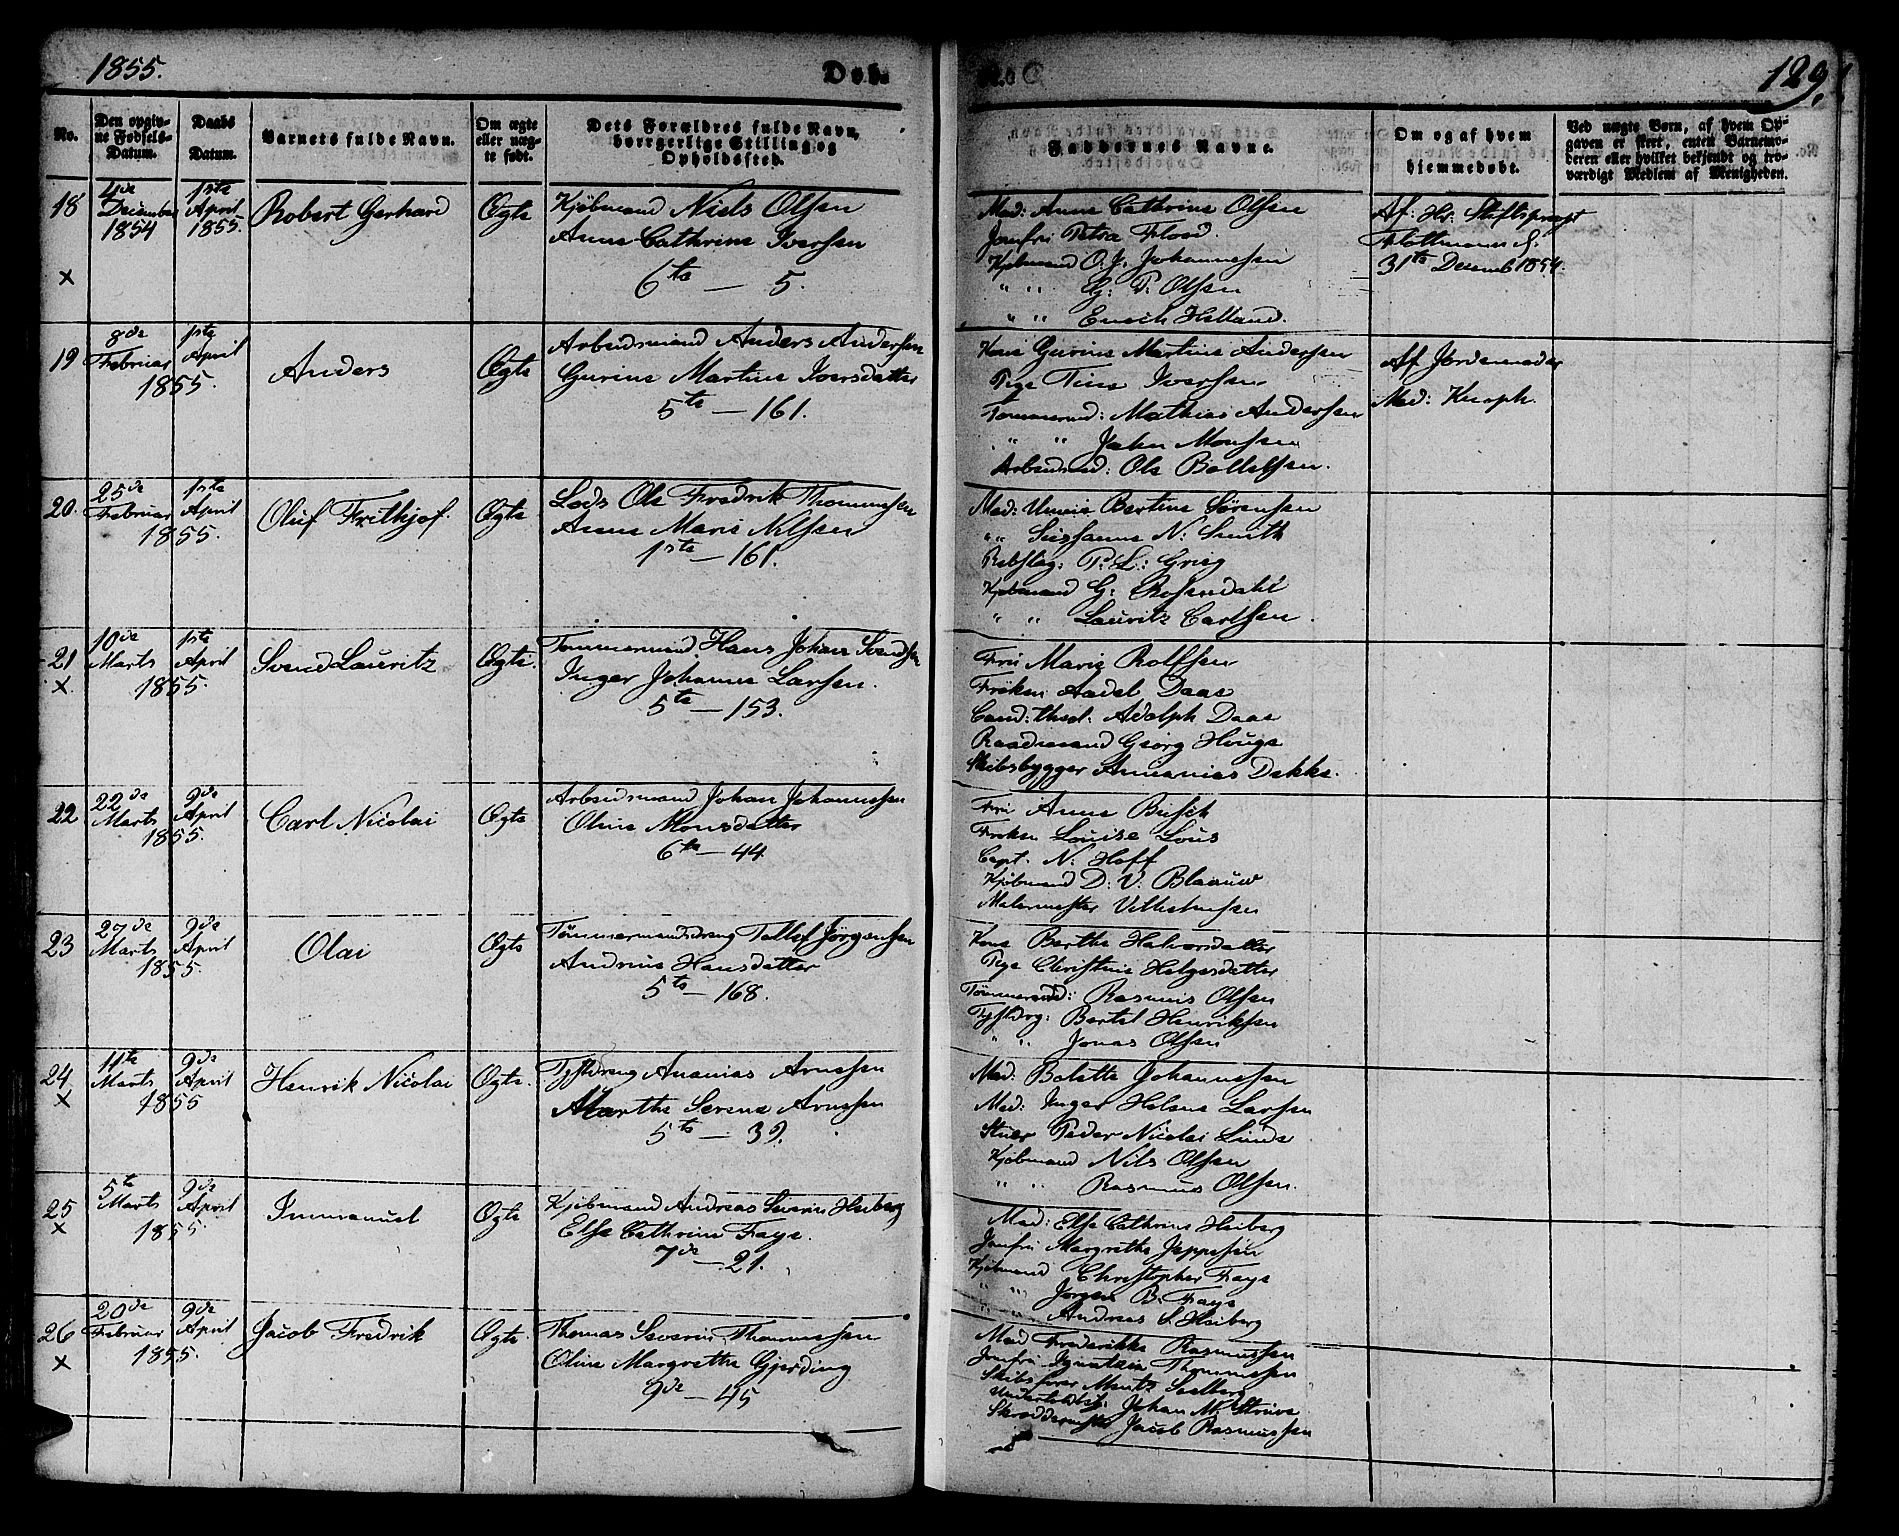 1855.
Døb
129.
No.
Den opgiv-
ne Fødsels-
Datum.
Daabs
Datum.
Barnets fulde Navn.
Om ægte
eller uæg-
te født.
Dets Forældres fulde Navn,
borgerlige Stilling og
Opholdssted.
Faddernes Navne.
Om og af hvem
hjemmedøbt.
Ved uægte Børn, af hvem Op-
gaven er skeet, enten Barnemo-
deren eller hvilket bekjendt og tro-
værdigt Medlem af Menigheden.
18
×
4de
December
1854
1ste
April
1855.
Robert Gerhard
Ægte
Kjøbmand Niels Olsen
Anne Cathrine Iversen
6te — 5.
Mad: Anne Cathrine Olsen
Jomfru Petra Floed
Kjøbmand O. J. Johannesen
" " G: P. Olsen
" " Enoch Helland.
Af: Hr: Stiftsprovst
Flottmann d.
31te Decemb 1854.
19
8de
Februar
1ste
April
1855.
Anders
Ægte
Arbeidsmand Anders Andersen
Gurine Martine Iversdatter
5te — 161.
Kone Gurine Martine Andersen
Pige Tine Iversen
Tømmermd: Mathias Andersen
" " John Monsen
Arbeidsmd: Ole Bottelsen.
Af Jordemoder
Mad: Knoph.
20.
25de
Februar
1ste
April
1855.
Oluf Frithjof.
Ægte
Lods Ole Fredrik Thommesen
Anne Marie Nilsen
1ste — 161.
Mad: Bertine Sørensen
" Sussanne N: Smith
Rebslag: P: L: Grieg
Kjøbmand G: Rosendahl
" " Lauritz Carlsen.
21
×
10de
Marts
1ste
April
1855.
Svend Lauritz
Ægte.
Tømmermand Hans Johan Svendsen
Inger Johanne Larsen.
5te — 153.
Fru Marie Rolfsen
Frøken Aadel Daae
Cand: theol. Adolph Daae
Raadmand Georg Houge
Skibsbygger Annanias Dekke.
22
22de
Marts
9de
April
1855.
Carl Nicolai
Ægte
Arbeidsmand Johan Johannesen
Oline Monsdatter
6te — 44
Fru Anne Busch
Frøken Louise Lous
Capt. N: Hoff
Kjøbmand D: V: Blaauw
Malermester Vilhelmsen
23
27de
Marts
9de
April
1855.
Olai
Ægte
Tømmermandsdreng Tollef Jørgensen
Andrine Hansdatter
5te — 168.
Kone Berthe Halvorsdatter
Pige Christine Helgesdatter
Tømmermd: Rasmus Olsen
Bertel Henriksen
" " Jonas Olsen
24
×
11te
Marts
9de
April
1855
Henrik Nicolai
Ægte.
Ananias Arnesen
Marthe Serene Arnesen
5te — 39.
Mad. Bolette Johannesen
Mad: Inger Helene Larsen
Peder Nicolai Linde
Kjøbmand Nils Olsen
" " Rasmus Olsen.
25
×
5te
Marts
9de
April
1855.
Immanuel
Ægte
Kjøbmand Andreas Severin Heiberg
Else Cathrine Faye.
7de — 21.
Mad: Else Cathrine Heiberg
Jomfru Margrethe Jeppesen
Kjøbmand Christopher Faye
" " Jørgen B. Faye
" " Andreas S. Heiberg
26
×
20de
Februar
9de
April
1855.
Jacob Fredrik
Ægte.
Thomas Severin Thommesen
Oline Margrethe Gjerding
9de — 45
Mad Frederikke Rasmussen
Jomfru Thommesen
Skibsfører Mentz Seelberg
Johan M. Struve
Skræddermester Jacob Rasmussen